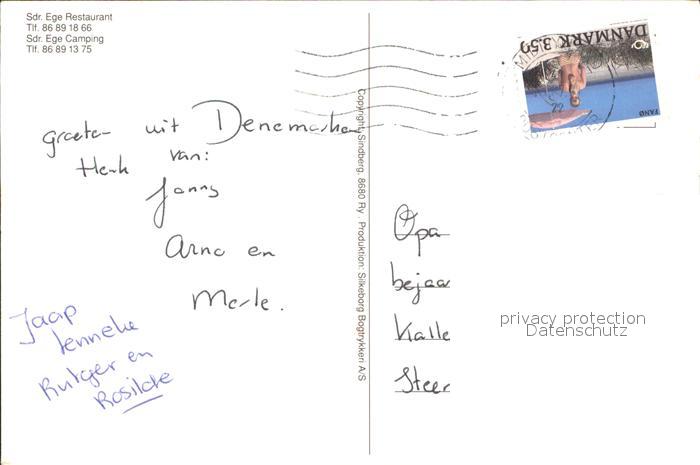 Sdr. Ege Restaurant
Tlf. 86 89 18 66
Sdr. Ege Camping
Tlf. 86 89 13 75
DANMARK 3.50
FANØ
Copyright Sindberg, 8680 Ry . Produktion: Silkeborg Bogtrykkeri A/S
groeten uit Denemarken
Henk van:
Janny
Arno en
Merle.
Jaap
Jenneke
Rutger en
Rosilde
Opa
bejaar
Kalle
Steer
privacy protection
Datenschutz